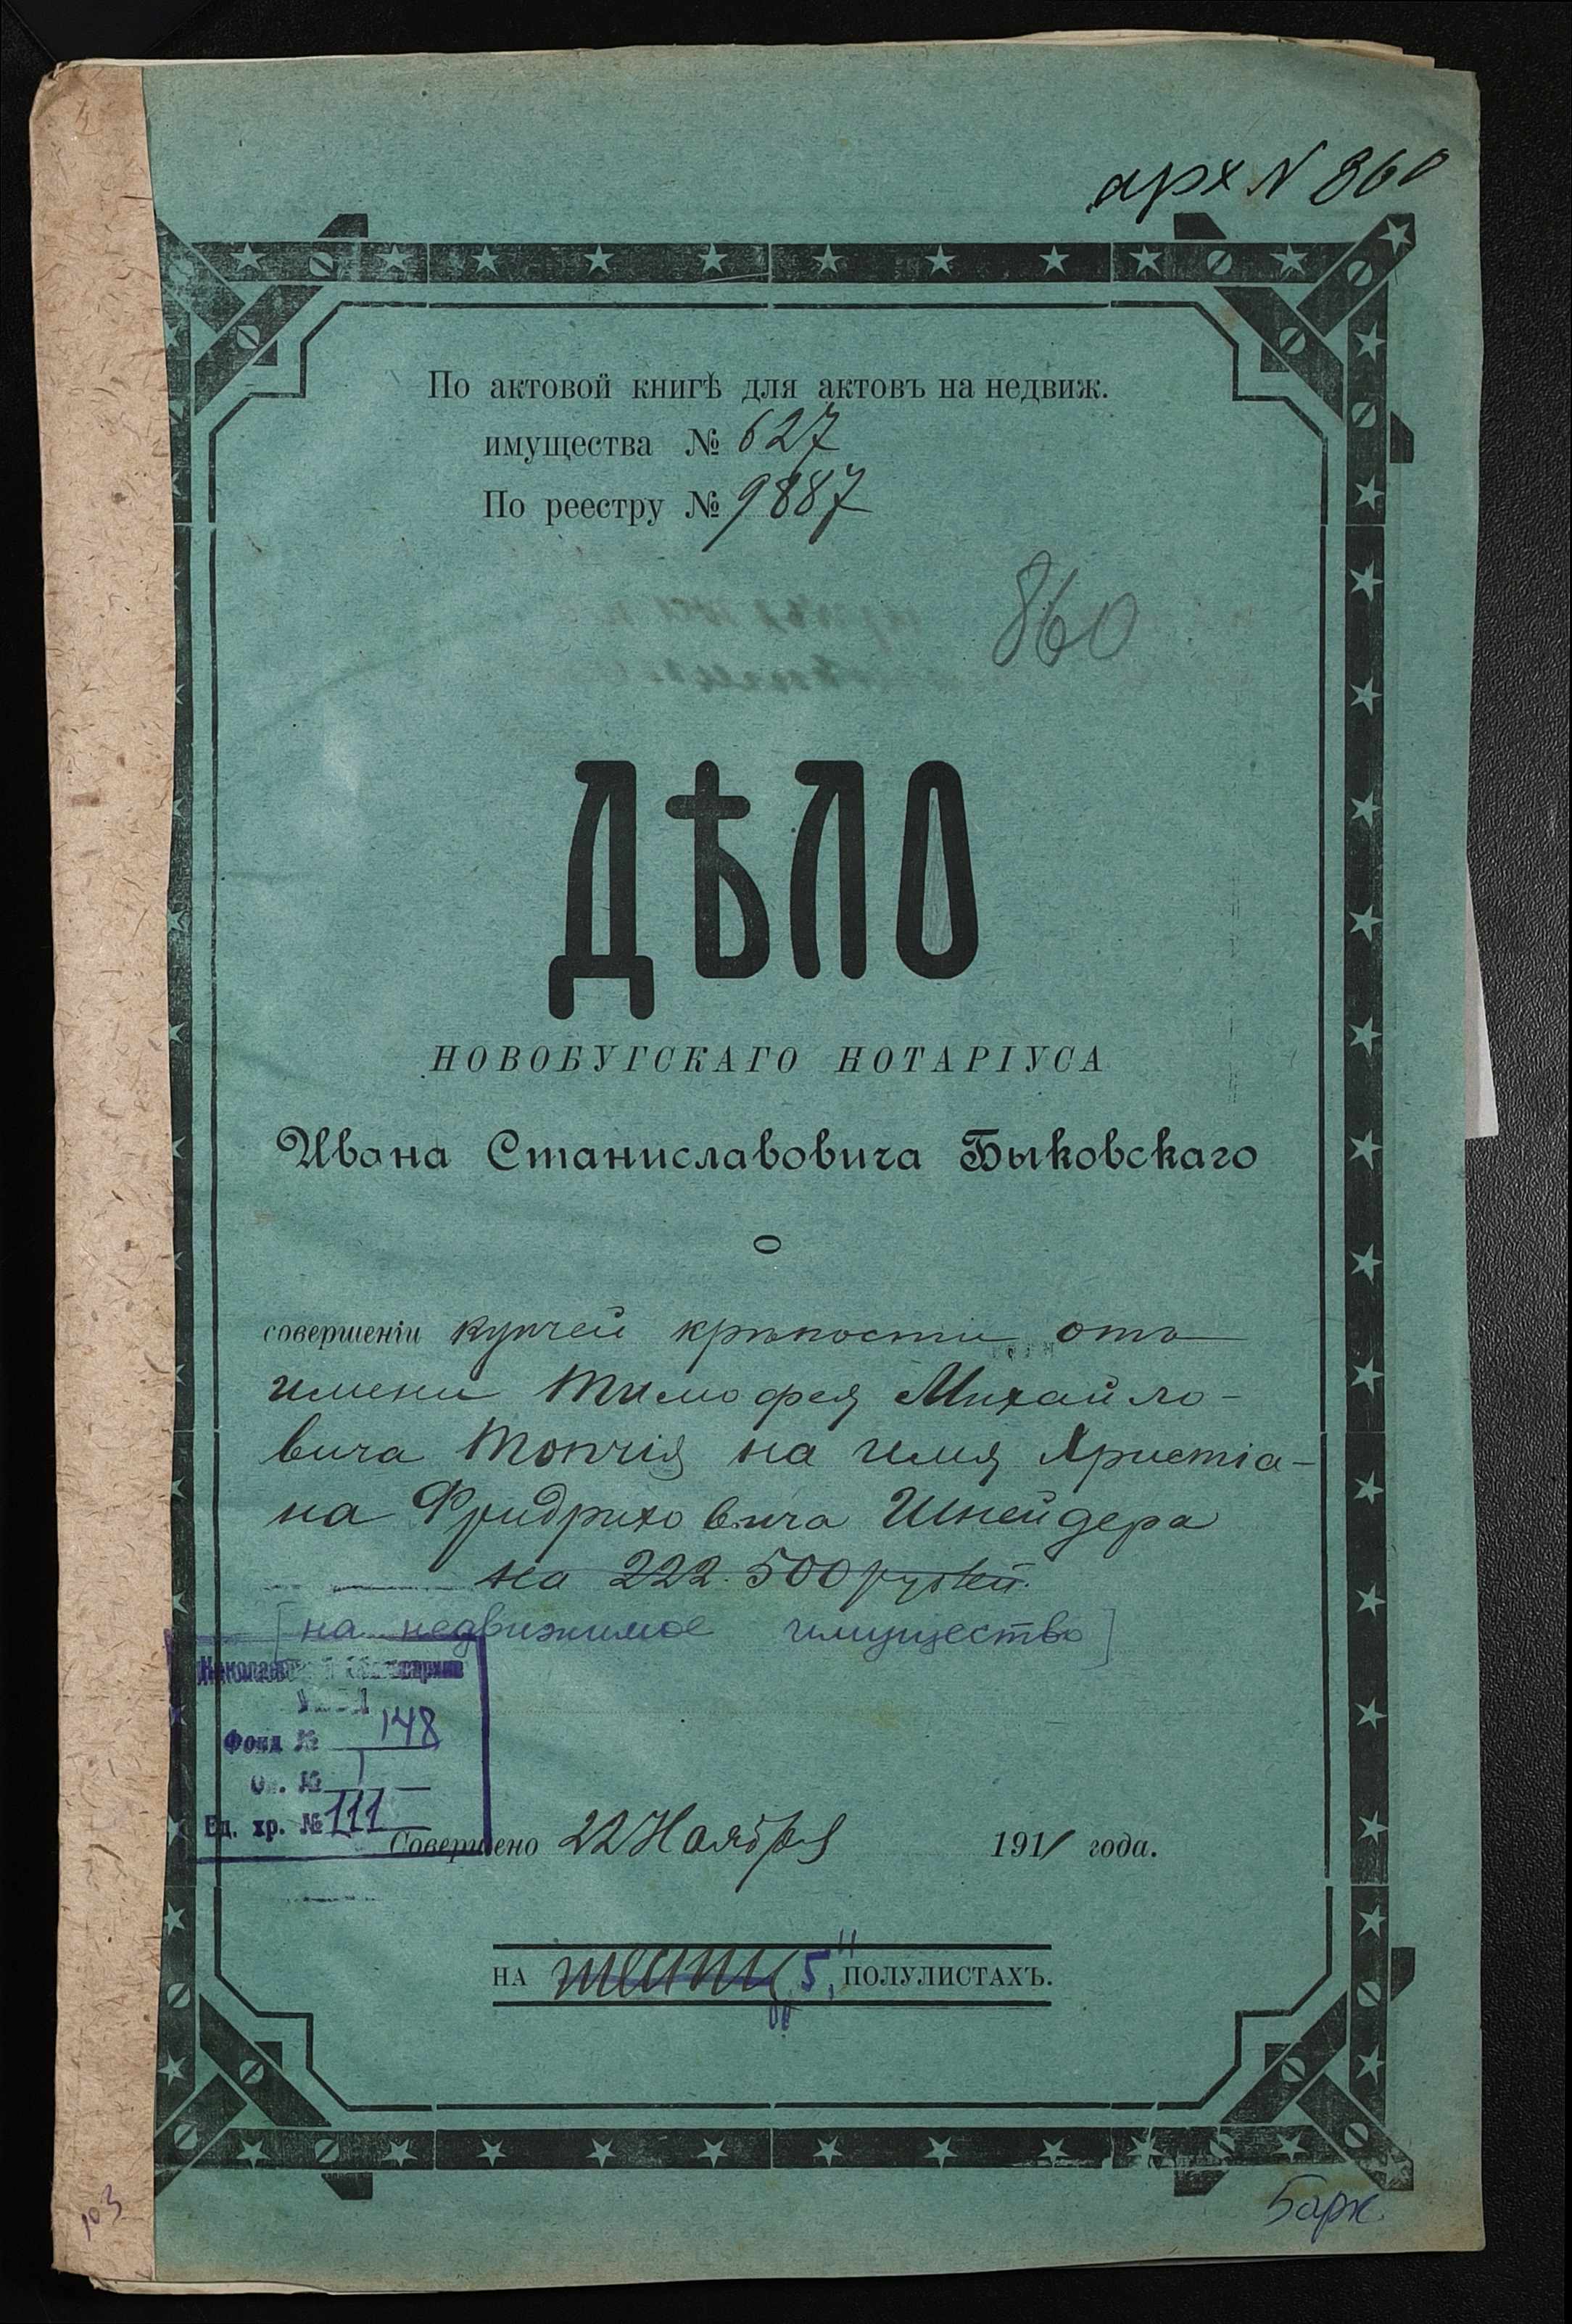 арх N 860
По актовой книгѣ для актовъ на недвиж.
имущества № 627
По реестру № 9887
860
ДѢЛО
НОВОБУГСКАГО НОТАРІУСА
Ивана Станиславовича Быковскаго
о
совершеніи купчей крѣпости отъ
имени Тимофея Михайло-
вича Топчія на имя Христіа-
на Фридриховича Шнейдера
на 222.500 рублей.
[на недвижимое имущество]
Фонд № 148
Оп. № 1
Ед. хр. № 111
Совершено 22 Ноября 1911 года.
НА шести "5" ПОЛУЛИСТАХЪ.
103